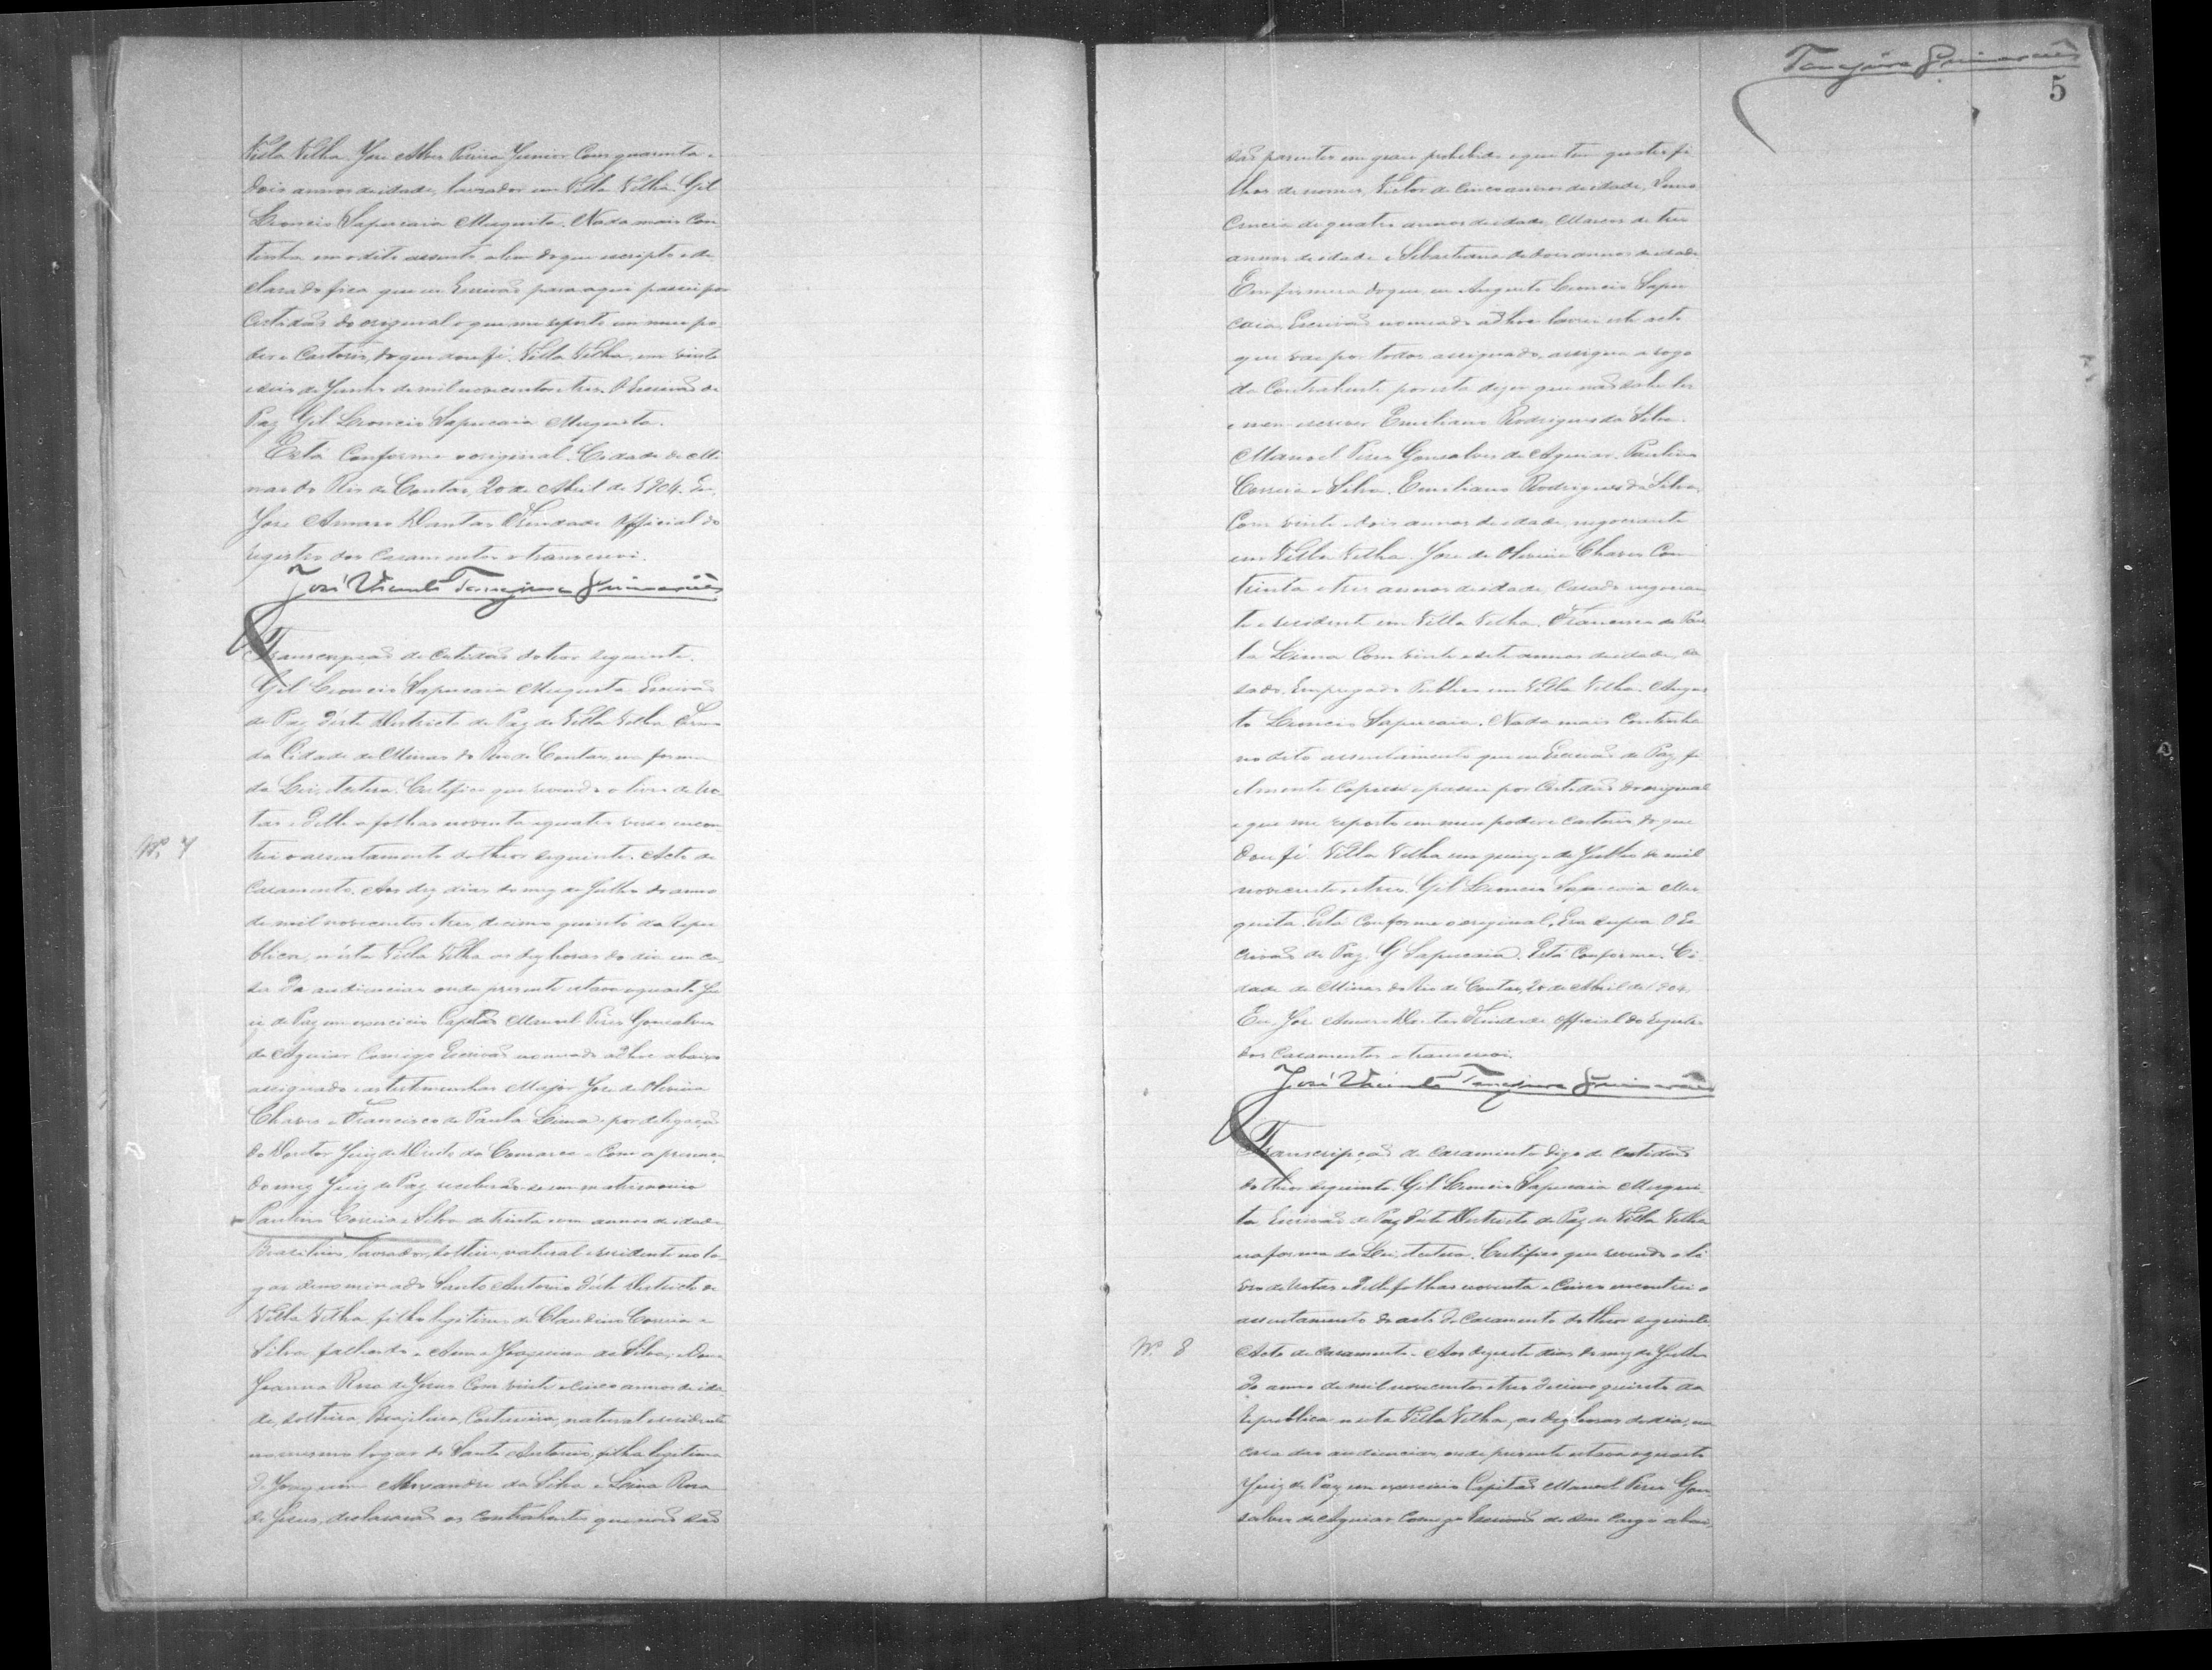 Villa Velha. José Alves Pereira Junior com quarenta e
dois annos de idade, lavrador em Villa Velha. Gil
Leoncio Sapucaia Mesquita. Nada mais con
tinha em o dito assento alem do que escripto e de
clarado fica que eu Escrivão para aqui passei por
Certidão do original a que me reporto em meu po
der e Cartorio, do que dou fé. Villa Velha, em vinte
e seis de Junho de mil novecentos e tres. O Escrivão de
Paz Gil Leoncio Sapucaia Mesquita.
Está Conforme o original. Cidade de Mi
nas do Rio de Contas, 20 de Abril de 1904. Eu,
José Amaro Dantas Trindade Official do
registro dos Casamentos o transcrevi.
José Vicente Tanajura Guimarães
Transcripção de Certidão do teor seguinte.
Gil Leoncio Sapucaia Mesquita Escrivão
de Paz d'este Districto de Paz de Villa Velha Termo
da Cidade de Minas do Rio de Contas, na forma
da Lei, etcetera. Certifico que revendo o livro de no
tas e delle a folhas noventa e quatro verso encon
Nº 7
trei o assentamento do theor seguinte. Acto de
Casamento. Aos dez dias do mez de Julho do anno
de mil novecentos e tres, decimo quinto da Repu
blica, n'esta Villa Velha as dez horas do dia em ca
sa da audiencias onde presente estava o quarto Ju
iz de Paz em exercicio Capitão Manoel Pires Gonsalves
de Aguiar Comigo Escrivão nomeado adhoc abaixo
assignado e as testemunhas Major José de Oliveira
Chaves e Francisco de Paula Lima, por delegação
do Doutor Juiz de Direito da Comarca e Com a presença
do mez Juiz de Paz receberão-se em matrimonio
Paulino Correia e Silva de trinta e um annos de idade
Brasileiro, lavrador, solteiro, natural e residente no lo
gar denominado Santo Antonio d'este Districto de
Villa Velha, filho legitimo de Claudino Correia e
Silva, fallecido e Anna Joaquina da Silva, e Dona
Joanna Rosa de Jesus com vinte e cinco annos de ida
de, solteira, Brazileira, Costureira, natural e residente
no mesmo logar de Santo Antonio, filha legitima
de Joaquim Alexandre da Silva e Lina Rosa
de Jesus, declararão os contrahentes que não são
Tanajura Guimarães
5
são parentes em grau prohibido e que tem quatro fi
lhos de nomes, Victor de Cinco annos de idade, Inno
cencia de quatro annos de idade, Marcos de tres
annos de idade e Sebastiana de dois annos de idade
Em firmeza do que eu Augusto Leoncio Sapu
caia, Escrivão nomeado adhoc lavrei este acto
que vae por todos assignado, assigna a rogo
da Contrahente por esta dizer que não sabe ler
e nem escrever Emiliano Rodrigues da Silva.
Manoel Pires Gonsalves de Aguiar. Paulino
Correia e Silva. Emiliano Rodrigues da Silva,
Com vinte e dois annos de idade, negociante
em Villa Velha. José de Oliveira Chaves Com
trinta e tres annos de idade, Casado negocian
te e residente em Villa Velha. Francisco de Pau
la Lima Com vinte e sete annos de idade, ca
sado, Empregado Publico em Villa Velha. Augus
to Leoncio Sapucaia. Nada mais Continha
no dito assentamento que eu Escrivão de Paz fi
elmente Copiei e passei por Certidão do original
a que me reporto em meu poder e cartorio do que
dou fé. Villa Velha em quinze de Julho de mil
novecentos e tres. Gil Leoncio Sapucaia Mes
quita. Está Conforme o original. Era supra. O Es
crivão de Paz. G Sapucaia. Está Conforme. Ci
dade de Minas do Rio de Contas, 20 de Abril de 1904.
Eu, José Amaro Dantas Trindade Official do Registro
dos Casamentos o transcrevi.
José Vicente Tanajura Guimarães
Transcripção de Casamento digo de Certidão
do theor seguinte. Gil Leoncio Sapucaia Mesqui
ta Escrivão de Paz d'este Districto de Paz de Villa Velha
na forma da Lei, etcetera. Certifico que revendo o li
vro de notas e delle folhas noventa e Cinco encontrei o
assentamento do acto de Casamento do theor seguinte
Nº 8
Acto de Casamento. Aos dezesete dias do mez de Julho
do anno de mil novecentos e tres decimo quinto da
Republica n'esta Villa Velha, as dez horas do dia, em
casa das audiencias, onde presente estava o quarto
Juiz de Paz em exercicio Capitão Manoel Pires Gon
salves de Aguiar Comigo Escrivão de seu Cargo abai